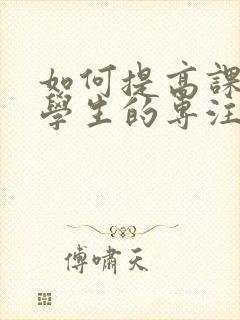 如何提高課
學生的專注
傅嘯天